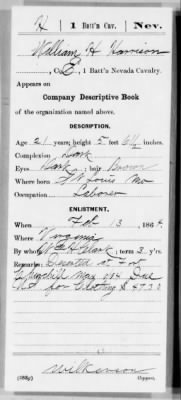 H 1 Batt'n Cav. Nev.
William H Harrison
, Co. E, 1 Batt'n Nevada Cavalry.
Appears on
Company Descriptive Book
of the organization named above.
DESCRIPTION.
Age 21 years; height 5 feet inches.
Complexion Dark
Eyes Dark; hair Brown
Where born St Louis Mo
Occupation Laborer
ENLISTMENT.
When Feb 13, 1864.
Where Virginia
By whom Clark; term 3 y'rs.
Remarks: Deserted at Fort
Due
for Clothing $ 47.32
Wilkinson
Copyist.